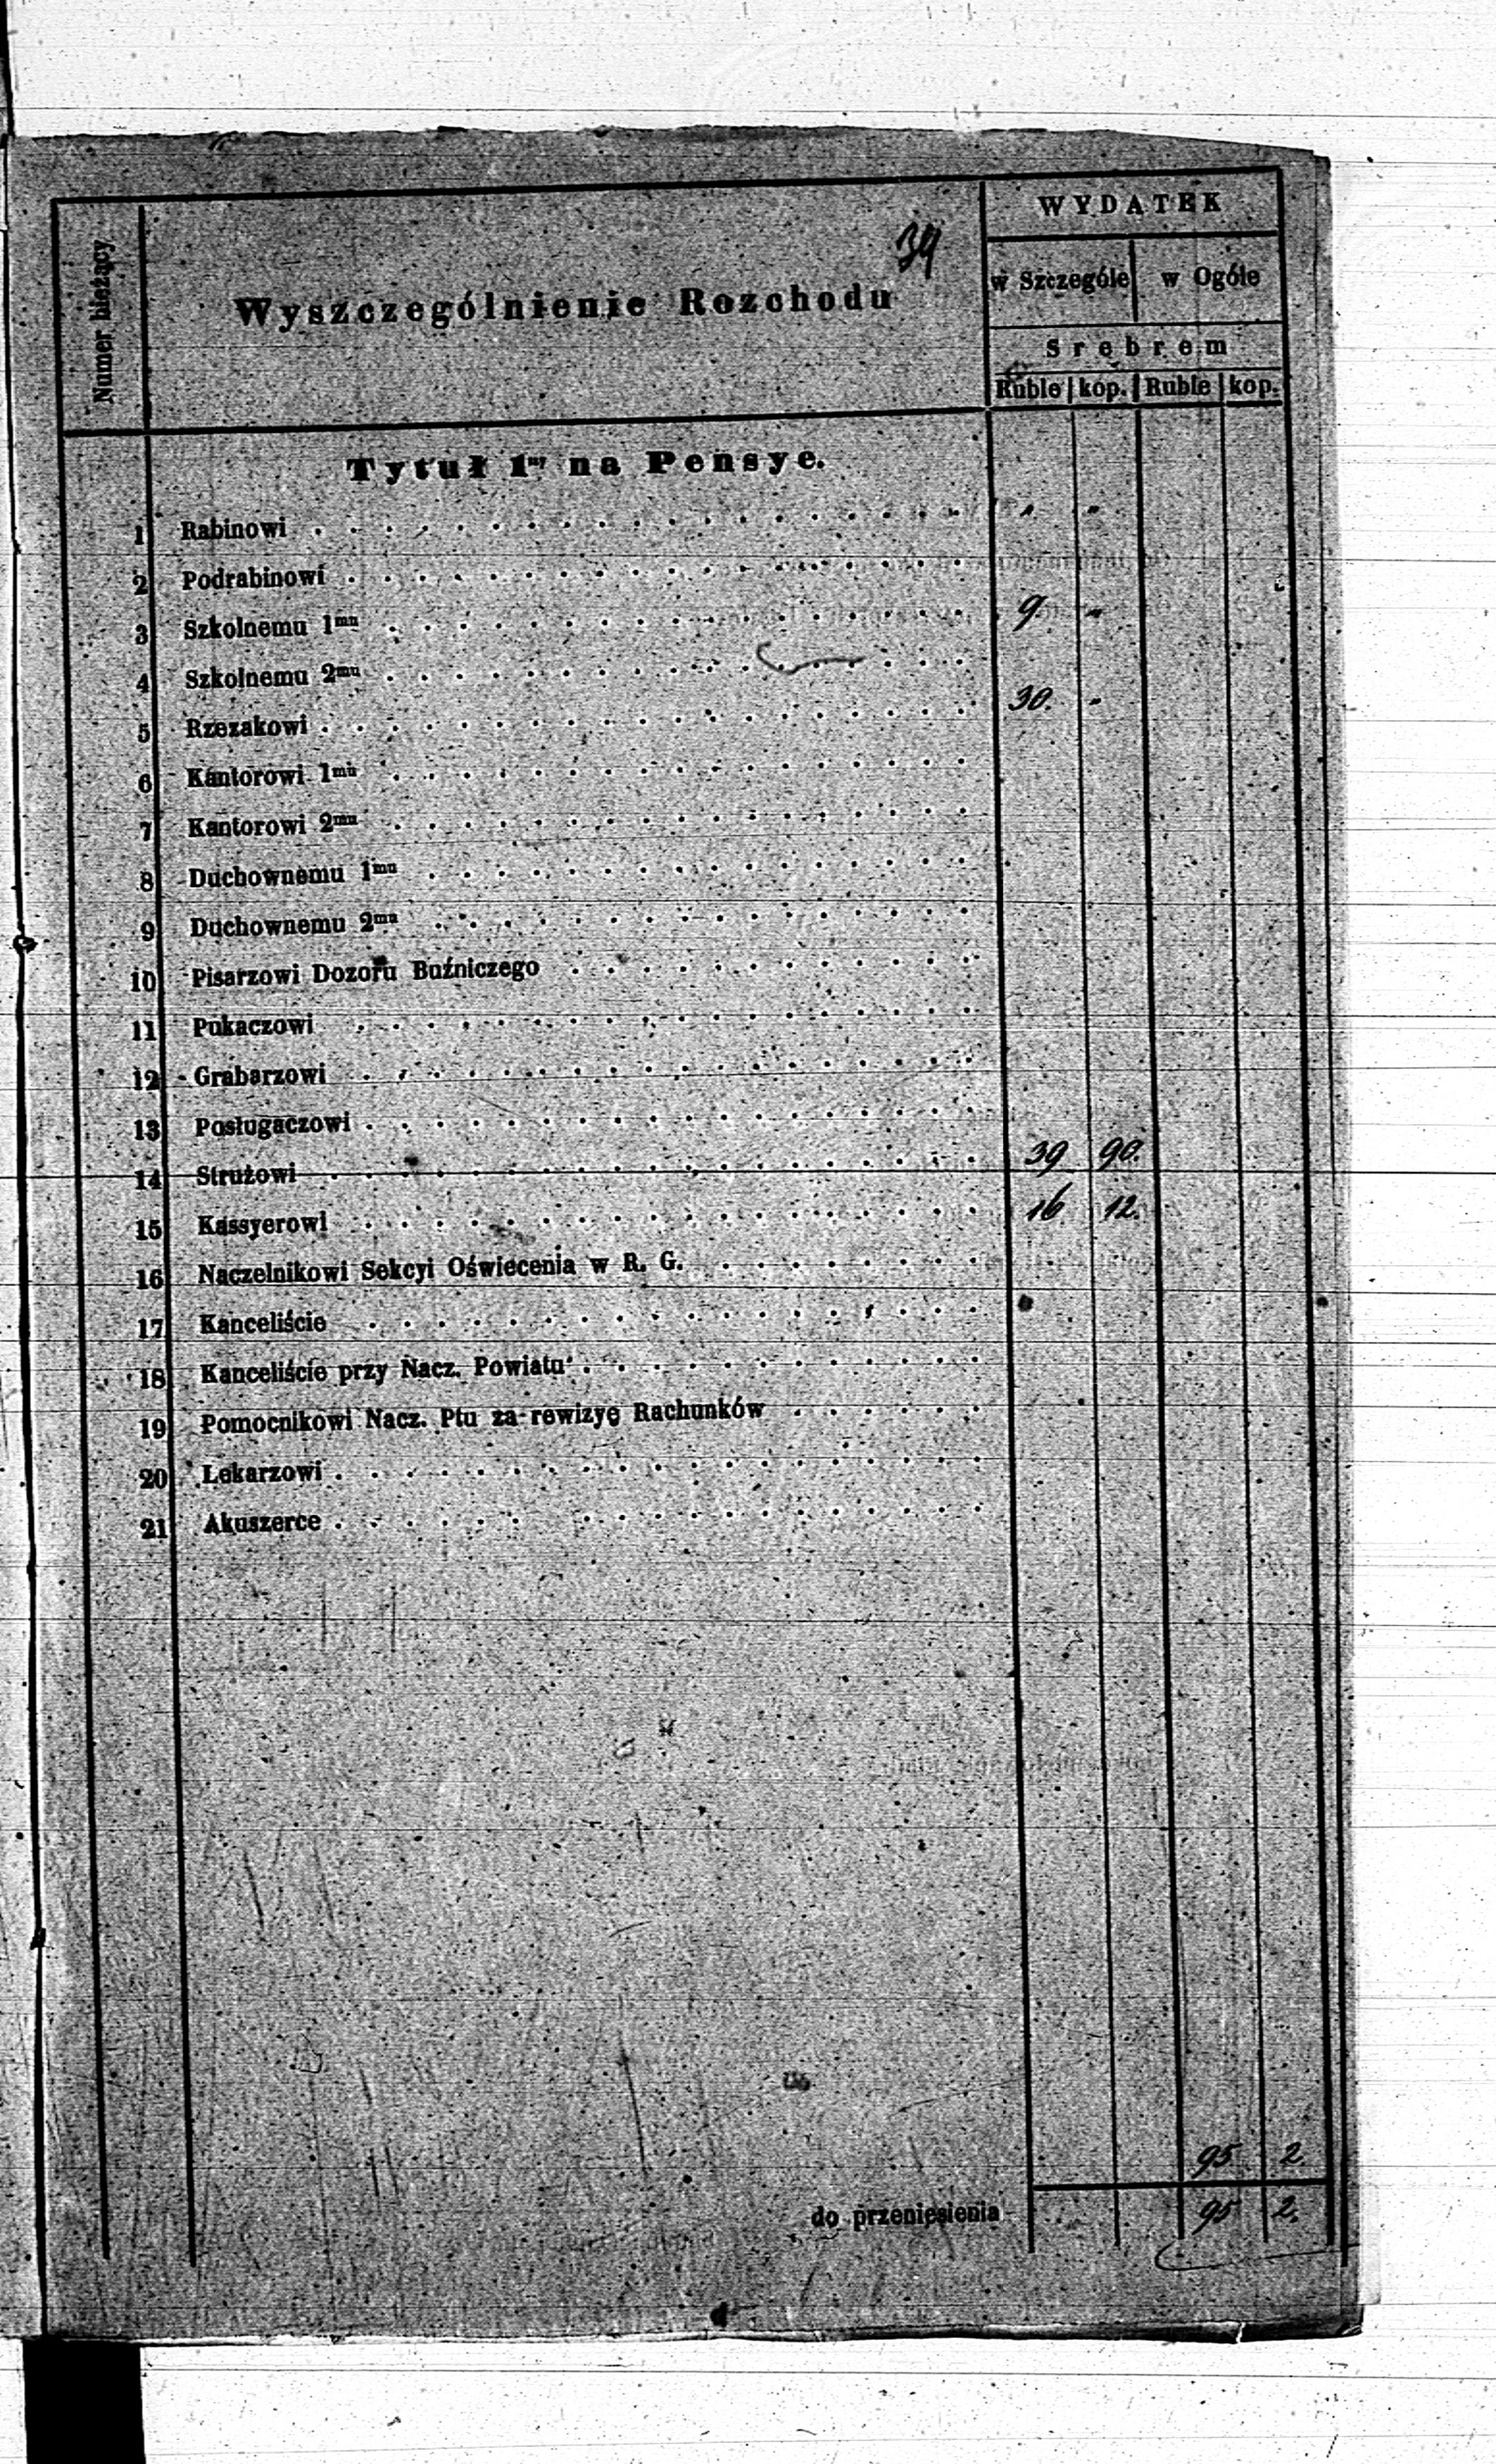 34
Numer bieżący
Wyszczególnienie Rozchodu
WYDATEK
w Szczególe w Ogóle
Srebrem
Ruble kop. Ruble kop.
Tytuł 1ny na Pensye.
1 Rabinowi . . . „ „
2 Podrabinowi . . .
3 Szkolnemu 1mu . . . 9. „
4 Szkolnemu 2mu . . .
5 Rzezakowi . . . 30. „
6 Kantorowi 1mu . . .
7 Kantorowi 2mu . . .
8 Duchownemu 1mu . . .
9 Duchownemu 2mu . . .
10 Pisarzowi Dozoru Buźniczego . . .
11 Pukaczowi . . .
12 Grabarzowi . . .
13 Posługaczowi . . .
14 Strużowi . . . 39 90.
15 Kassyerowi . . . 16 12.
16 Naczelnikowi Sekcyi Oświecenia w R. G. . . .
17 Kanceliście . . .
18 Kanceliście przy Nacz. Powiatu . . .
19 Pomocnikowi Nacz. Ptu za rewizyę Rachunków . . .
20 Lekarzowi . . .
21 Akuszerce . . .
95 2.
do przeniesienia 95 2.